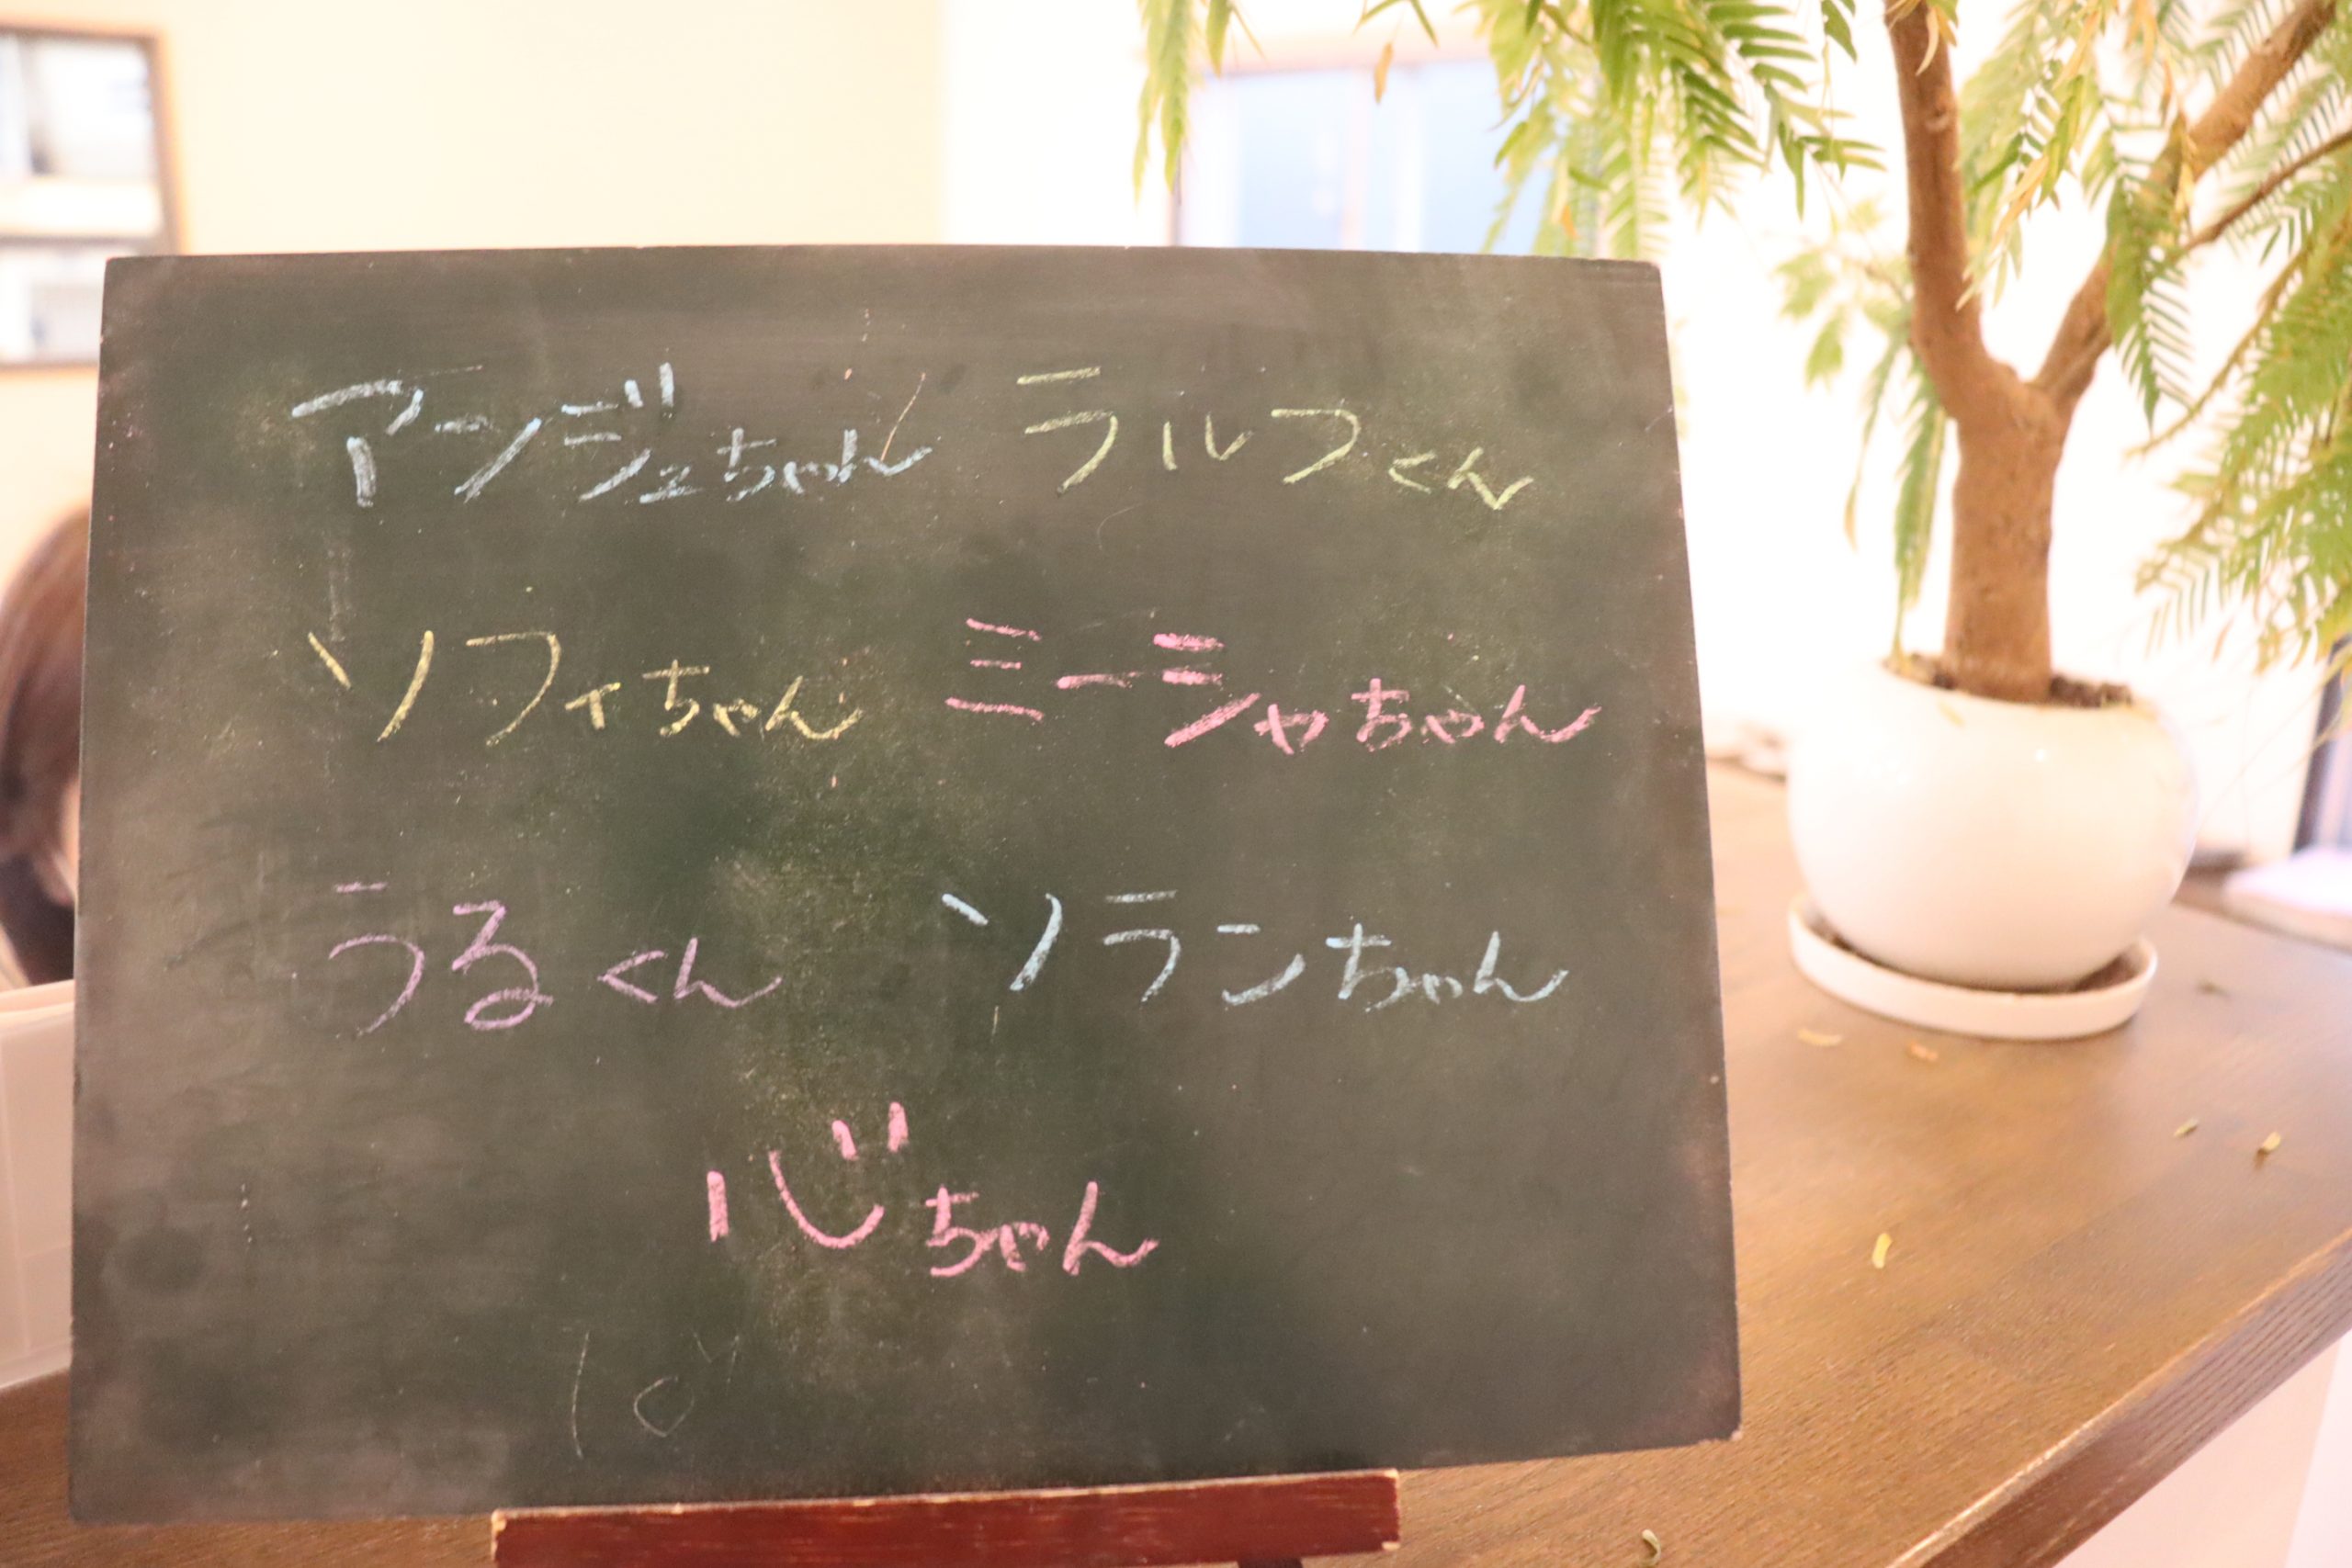 アンジュちゃん ラルフくん
ソフィちゃん ミーシャちゃん
うるくん ソランちゃん
心ちゃん